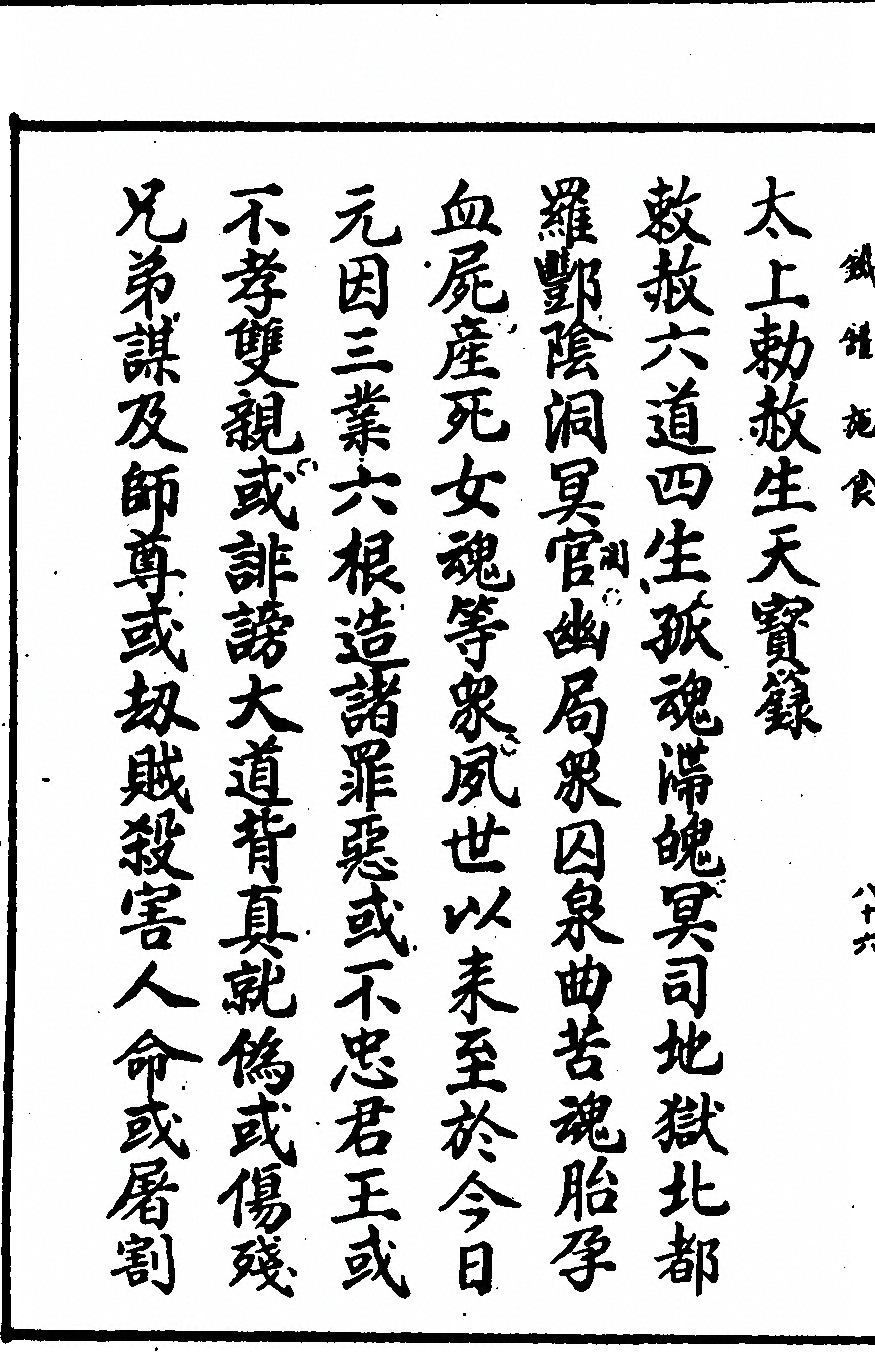 鐵鑵施食
八十六
太上勅赦生天寶籙
敕赦六道四生孤魂滯魄冥司地獄北都
羅酆陰洞冥官幽局眾囚泉曲苦魂胎孕
血屍產死女魂等眾夙世以来至於今日
元因三業六根造諸罪惡或不忠君王或
不孝雙親或誹謗大道背真就偽或傷殘
兄弟謀及師尊或劫賊殺害人命或屠割